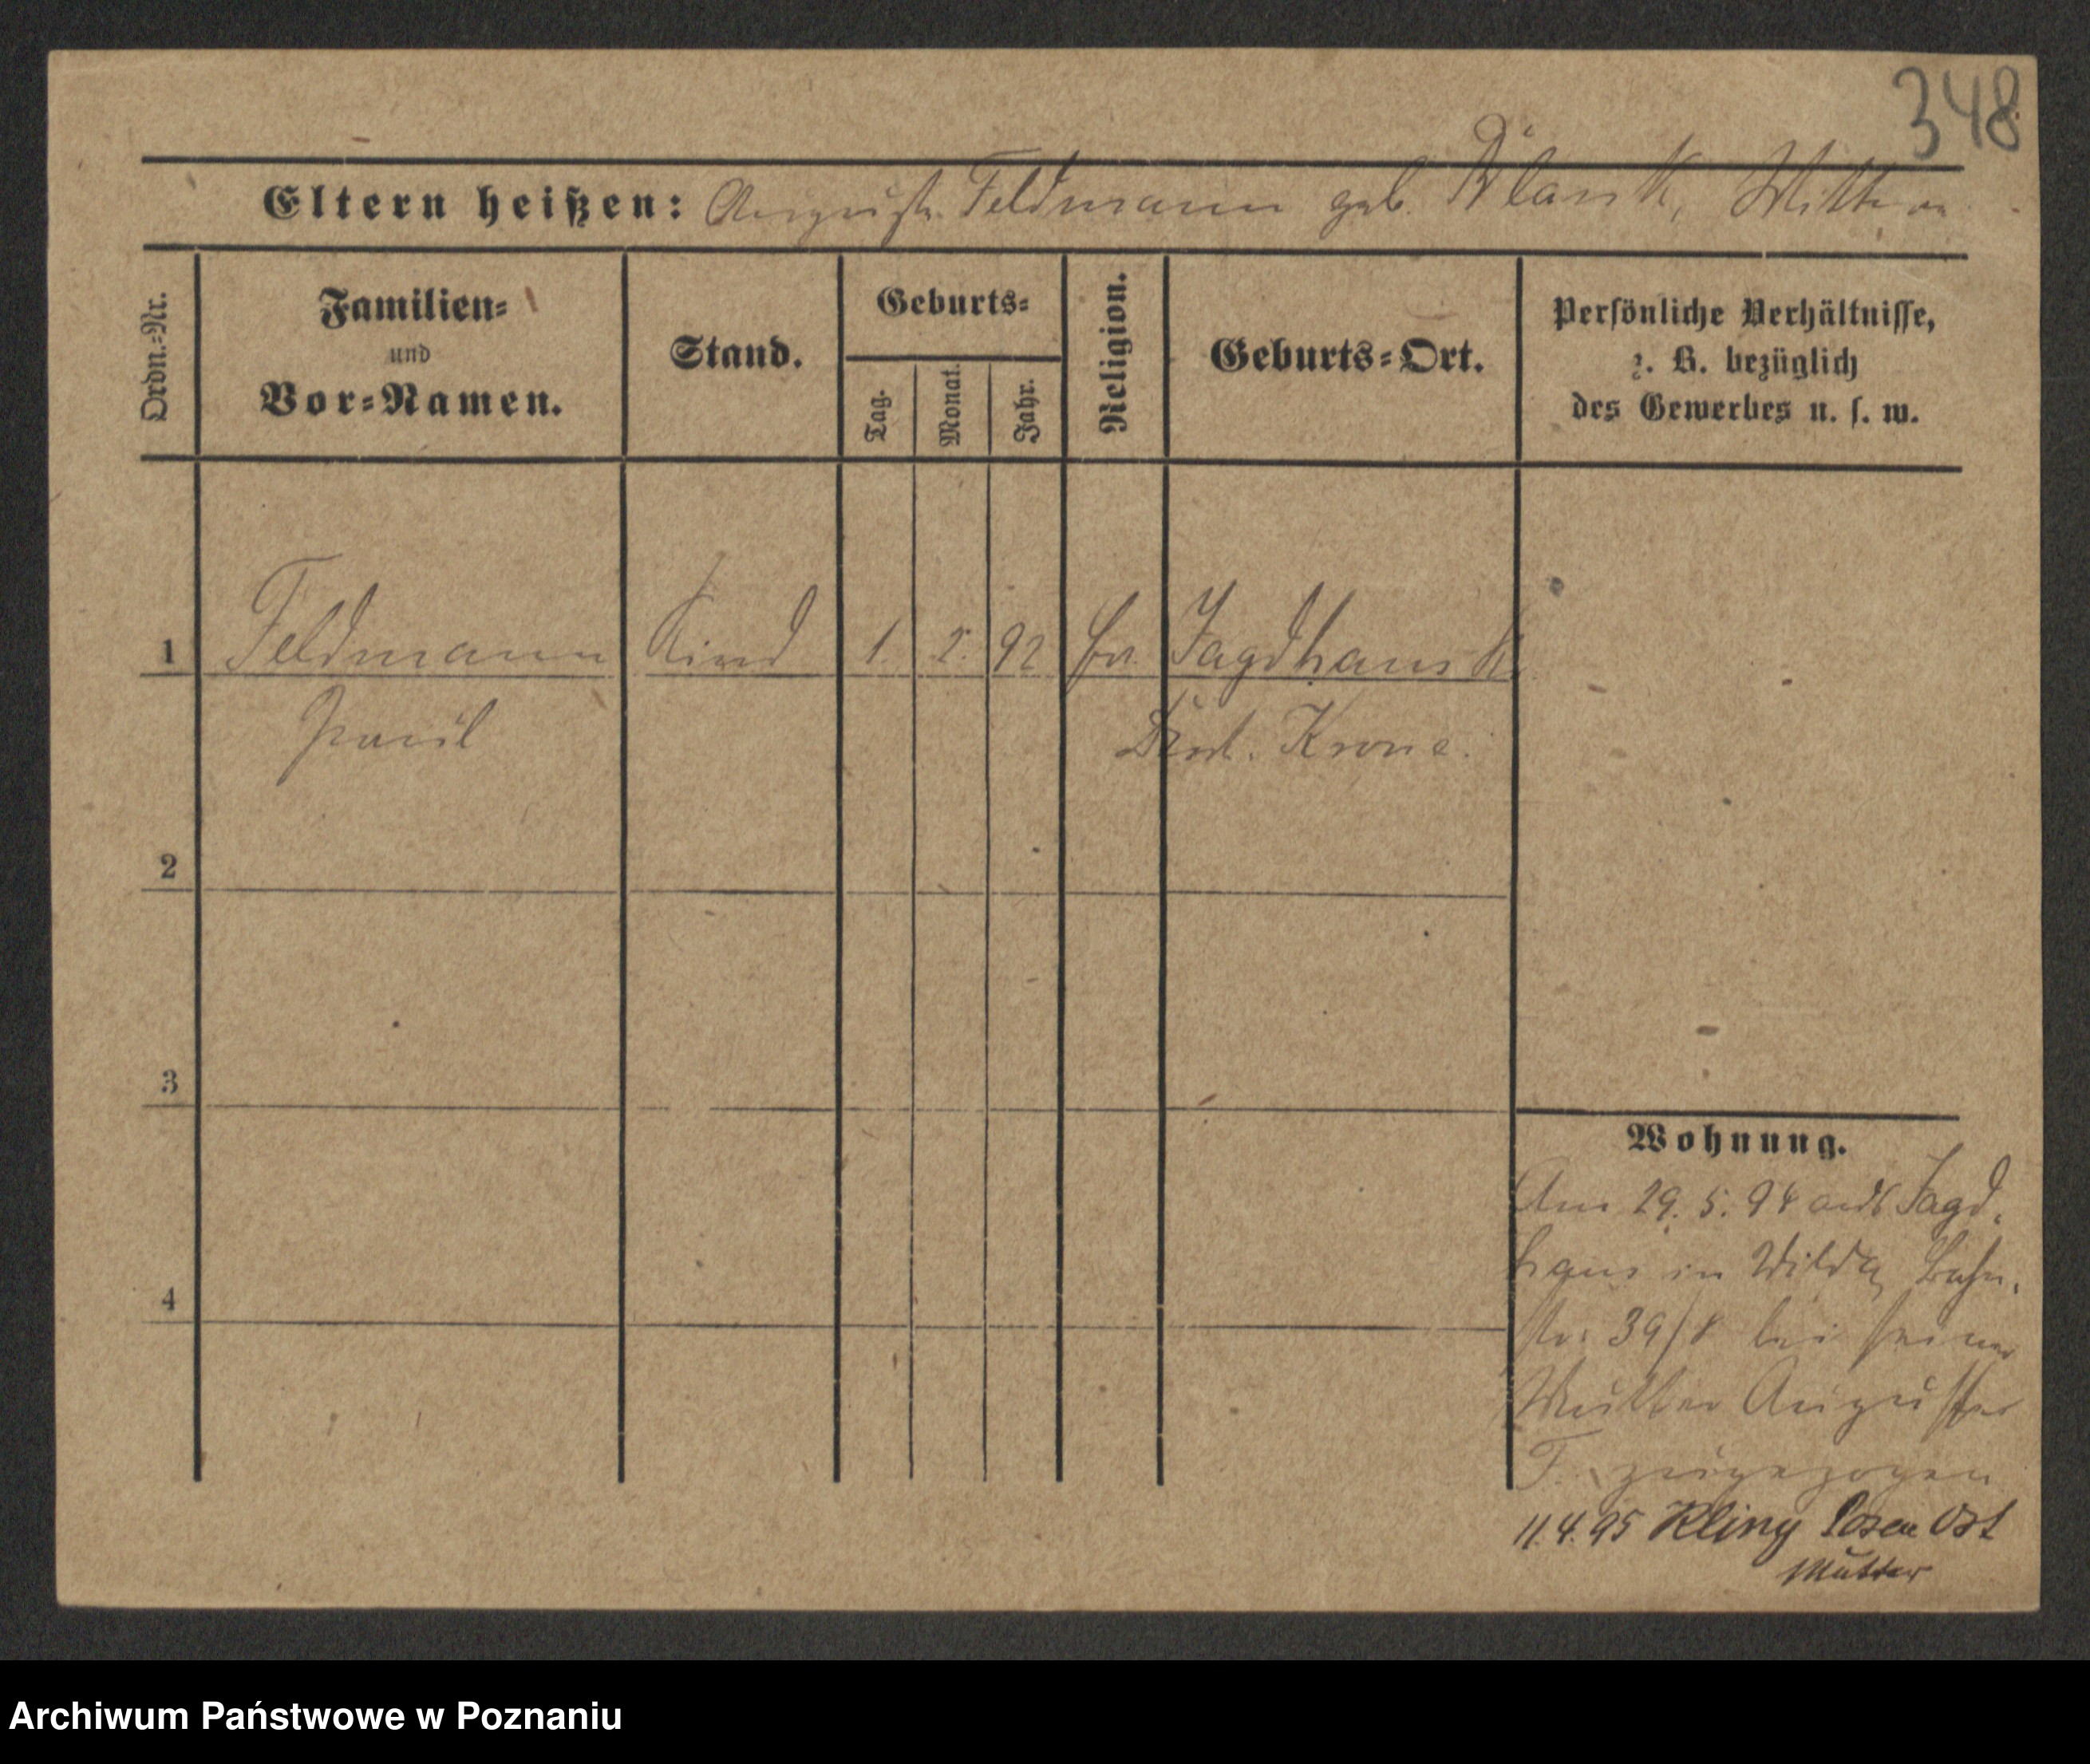 348
Eltern heißen: Auguste Feldmann geb. Blank, Wittwe
Ordn.-Nr.
Familien-
und
Vor-Namen.
Stand.
Geburts-
Tag.
Monat.
Jahr.
Religion.
Geburts-Ort.
Persönliche Verhältnisse,
z. B. bezüglich
des Gewerbes u. s. w.
1 Feldmann Kind 1. 92 ev. Jagdhaus K.
Paul Krone.
2
3
4
Wohnung.
Am 29. 5. 94 aus Jagd-
haus in Wilda, Bahn-
str. 39/8 bei seiner
Mutter Auguste
F. zugezogen
11.4.95 Kling Posen Ost
Mutter
Archiwum Państwowe w Poznaniu